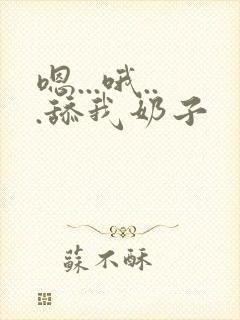 嗯...哦..
.舔我奶子
蘇不酥